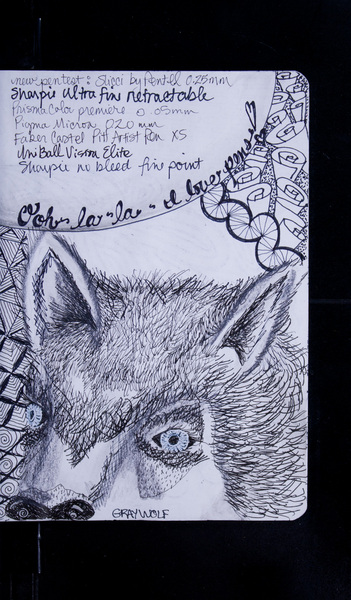 new pen test: Slicci by Pentel 0.25mm
Sharpie Ultra fine retractable
PrismaColor premiere 0.05mm
Pigma Micron .020 mm
Faber Castel Pitt Artist Pen XS
UniBall Vision Elite
Sharpie no bleed fine point
Ooh-la-la-I love pens!
GRAY WOLF